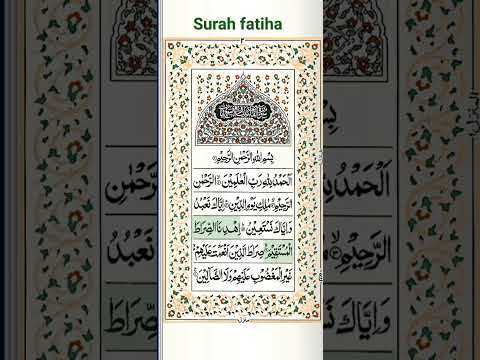 Surah fatiha
بِسْمِ اللّٰهِ الرَّحْمٰنِ الرَّحِيْمِ
اَلْحَمْدُ لِلّٰهِ رَبِّ الْعٰلَمِيْنَ ۙ الرَّحْمٰنِ
الرَّحِيْمِ ۙ مٰلِكِ يَوْمِ الدِّيْنِ ؕ اِيَّاكَ نَعْبُدُ
وَاِيَّاكَ نَسْتَعِيْنُ ؕ اِهْدِنَا الصِّرَاطَ
الْمُسْتَقِيْمَ ۙ صِرَاطَ الَّذِيْنَ اَنْعَمْتَ عَلَيْهِمْ
غَيْرِ الْمَغْضُوْبِ عَلَيْهِمْ وَلَا الضَّآلِّيْنَ